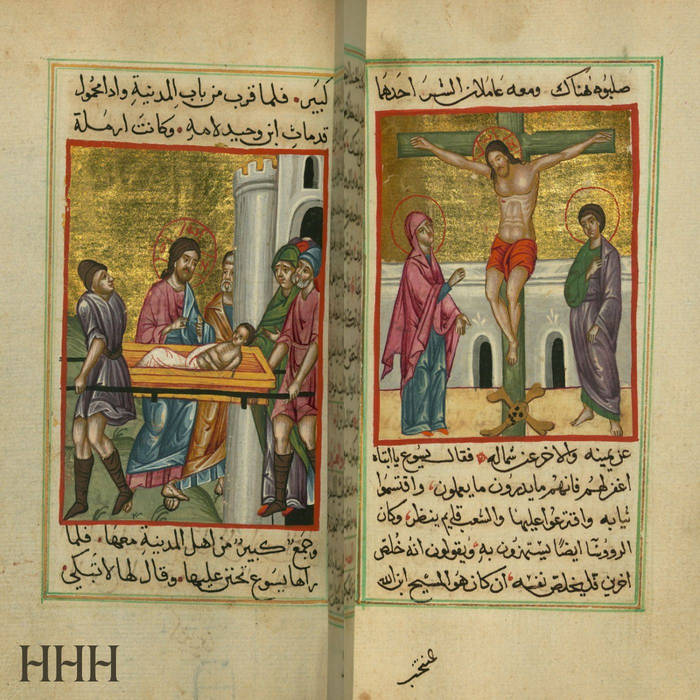 صلبوه هناك ومعه عاملان الشر احدها
عن يمينه والاخر عن شماله فقال يسوع يا ابتاه
اغفر لهم فانهم ما يدرون ما يعملون واقتسموا
ثيابه واقترعوا عليها والشعب قايم ينظر وكان
الروسا ايضا يستهزون به ويقولون انه خلص
اخرين فليخلص نفسه ان كان هو المسيح ابن الله
كبير فلما قرب من باب المدينة واذا محمول
قد مات ابن وحيد لامه وكانت ارملة
وجمع كبير من اهل المدينة معها فلما
راها يسوع تحنن عليها وقال لها لا تبكي
HHH